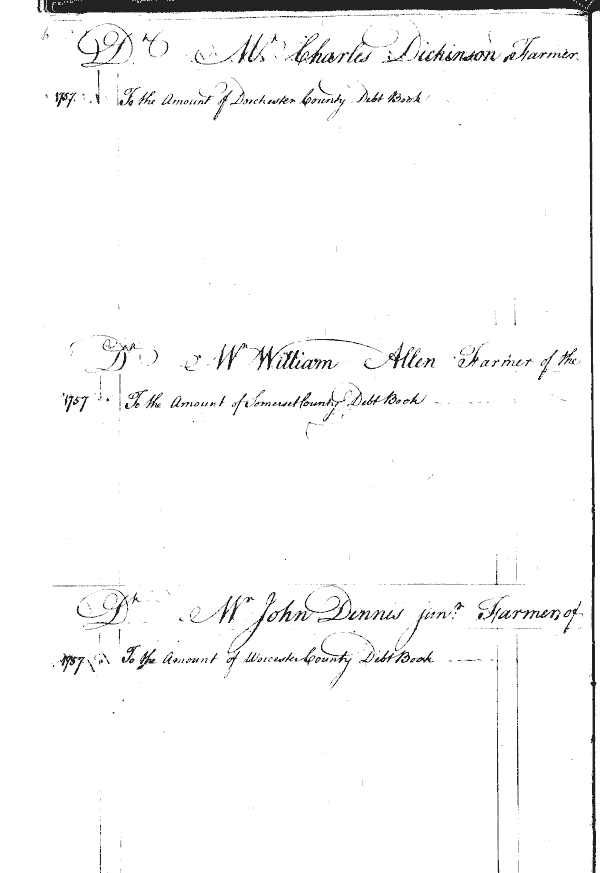 6
Dr Mr. Charles Dickinson Farmer
1757. To the Amount of Dorchester County Debt Book
Dr Mr William Allen Farmer of the
1757 To the Amount of Somerset County Debt Book
Dr Mr John Dennis junr. Farmer, of
1757 To the Amount of Worcester County Debt Book